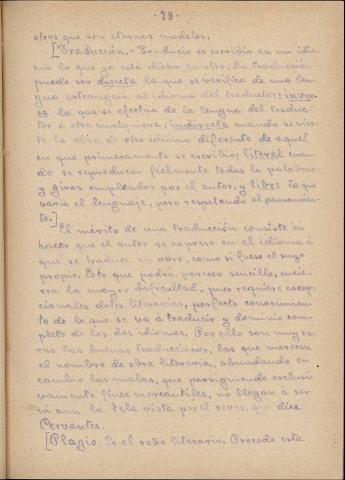 - 79 -
otros que son eternos modelos.
[Traducción.- Traducir es escribir en un idio-
ma lo que ya está dicho en otro; la traducción
puede ser directa la que se verifica de una len-
gua extrangera al idioma del traductor; inver-
sa la que se efectúa de la lengua del traduc-
tor a otra cualquiera; indirecta cuando se vier-
te la obra de otro idioma diferente de aquel
en que primeramente se escribió; literal cuan-
do se reproducen fielmente todas la palabras
y giros empleados por el autor, y libre la que
varía el lenguaje, pero respetando el pensamien-
to.]
El mérito de una traducción consiste en
hacer que el autor se exprese en el idioma á
que se traduce su obra, como si fuese el suyo
propio. Esto que podrá parecer sencillo, encie-
rra la mayor dificultad, pues requiere excep-
cionales dotes literarias, perfecto conocimien-
to de lo que se va á traducir y dominio com-
pleto de los dos idiomas. Por ello son muy ra-
ras las buenas traducciones, las que merecen
el nombre de obra literaria, abundando en
cambio las malas, que persiguiendo exclusi-
vamente fines mercantiles, no llegan á ser
ni aun la tela vista por el revés, que dice
Cervantes.
[Plagio. Es el robo literario. Procede esta